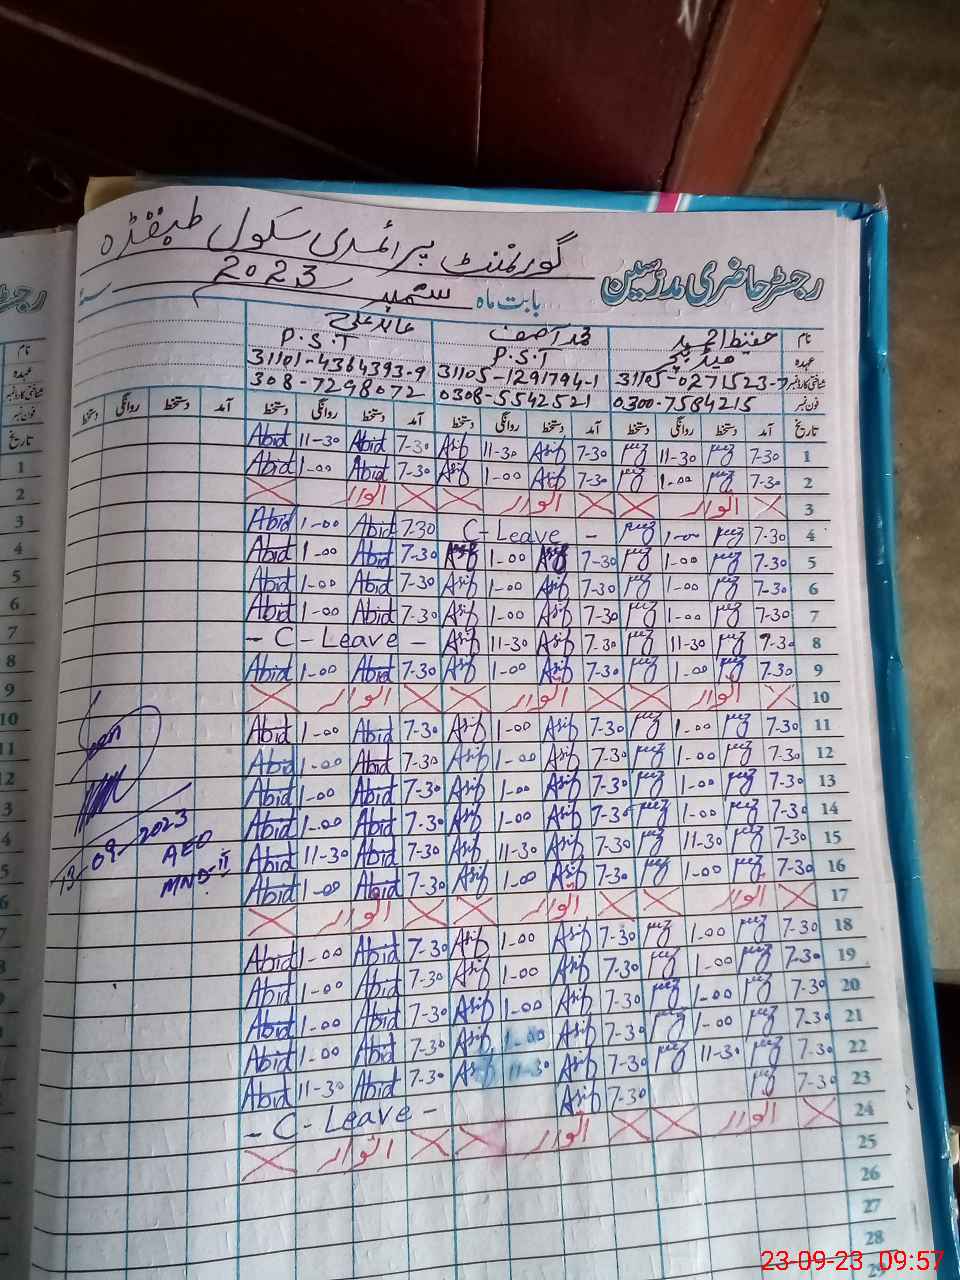 گورنمنٹ پرائمری سکول
رجسٹر حاضری مدرسین
بابت ماہ ستمبر 2023
نام حفیظ احمد محمد آصف عابد علی
عہدہ ہیڈ ٹیچر P.S.T P.S.T
شناختی کارڈ نمبر 31105-0271523-7 31105-1291794-1 31101-4364393-9
فون نمبر 0300-7584215 0308-5542521 308-7298072
تاریخ آمد دستخط روانگی دستخط آمد دستخط روانگی دستخط آمد دستخط روانگی دستخط آمد دستخط روانگی دستخط
1 7-30 11-30 7-30 Asif 11-30 Asif 7-30 Abid 11-30 Abid
2 7-30 1-00 7-30 Asif 1-00 Asif 7-30 Abid 1-00 Abid
3 اتوار اتوار اتوار
4 7-30 1-00 - C-Leave 7-30 Abid 1-00 Abid
5 7-30 1-00 7-30 Asif 1-00 Asif 7-30 Abid 1-00 Abid
6 7-30 1-00 7-30 Asif 1-00 Asif 7-30 Abid 1-00 Abid
7 7-30 1-00 7-30 Asif 1-00 Asif 7-30 Abid 1-00 Abid
8 7-30 11-30 7-30 Asif 11-30 Asif - C-Leave -
9 7-30 1-00 7-30 Asif 1-00 Asif 7-30 Abid 1-00 Abid
10 اتوار اتوار اتوار
11 7-30 1-00 7-30 Asif 1-00 Asif 7-30 Abid 1-00 Abid
12 7-30 1-00 7-30 Asif 1-00 Asif 7-30 Abid 1-00 Abid
13 7-30 1-00 7-30 Asif 1-00 Asif 7-30 Abid 1-00 Abid
14 7-30 1-00 7-30 Asif 1-00 Asif 7-30 Abid 1-00 Abid
15 7-30 11-30 7-30 Asif 11-30 Asif 7-30 Abid 11-30 Abid
16 7-30 1-00 7-30 Asif 1-00 Asif 7-30 Abid 1-00 Abid
17 اتوار اتوار اتوار
18 7-30 1-00 7-30 Asif 1-00 Asif 7-30 Abid 1-00 Abid
19 7-30 1-00 7-30 Asif 1-00 Asif 7-30 Abid 1-00 Abid
20 7-30 1-00 7-30 Asif 1-00 Asif 7-30 Abid 1-00 Abid
21 7-30 1-00 7-30 Asif 1-00 Asif 7-30 Abid 1-00 Abid
22 7-30 11-30 7-30 Asif 11-30 Asif 7-30 Abid 11-30 Abid
23 7-30 7-30 Asif - C-Leave -
24 اتوار اتوار اتوار
25
26
27
28
29
13-09-2023
AEO
MND-II
23-09-23 09:57